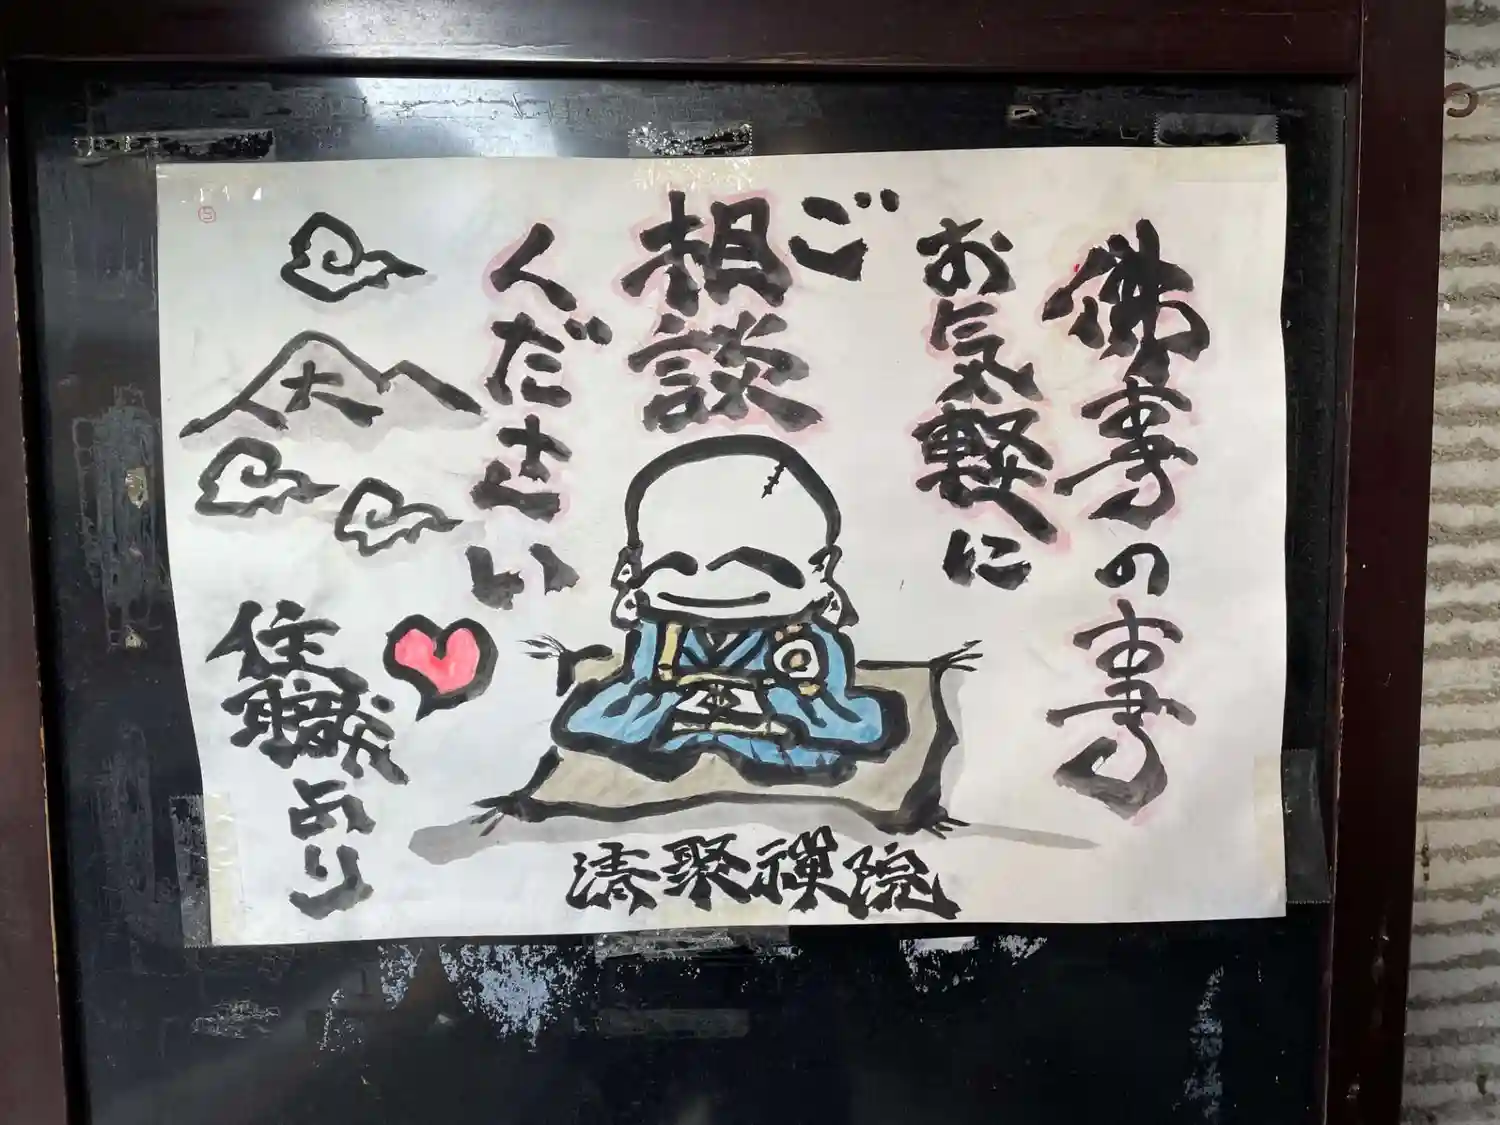 佛事の事
お気軽に
ご
相談
ください
大
住職より
清聚禅院